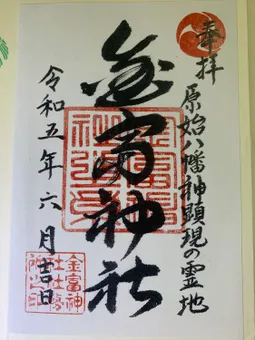 奉拝
原始八幡神顕現の霊地
金富神社
令和五年六月廿日
金富神
社社務
所之印